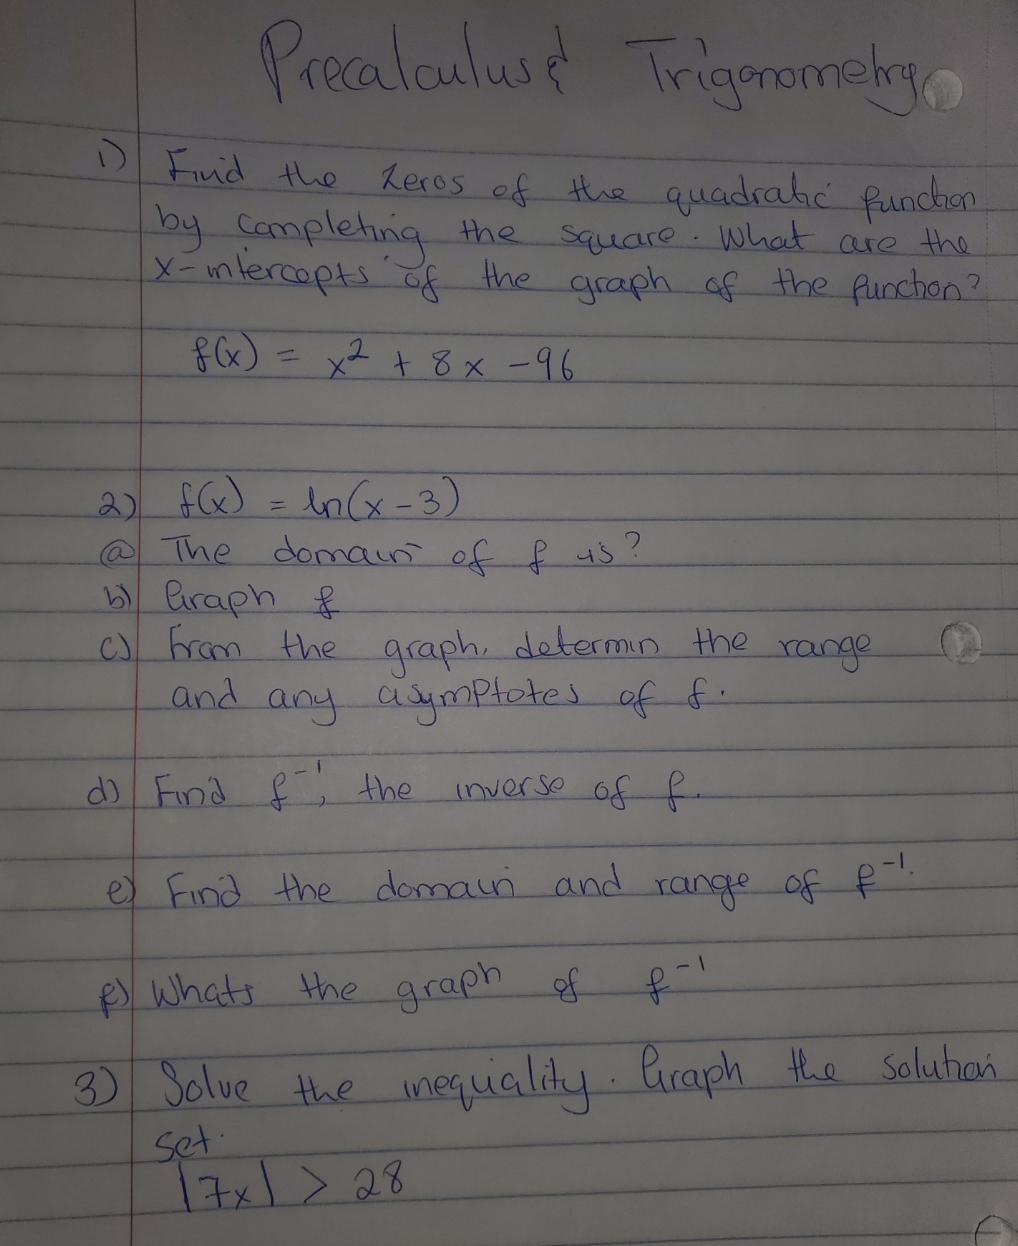 Precalculus & Trigonometry
1) Find the zeros of the quadratic function
by completing the square. What are the
x-intercepts of the graph of the function?
f(x) = x² + 8x - 96
2) f(x) = ln(x-3)
a) The domain of f is?
b) Graph f
c) From the graph, determin the range
and any asymptotes of f.
d) Find f⁻¹, the inverse of f.
e) Find the domain and range of f⁻¹.
f) Whats the graph of f⁻¹
3) Solve the inequiality. Graph the solution
set.
|7x| > 28